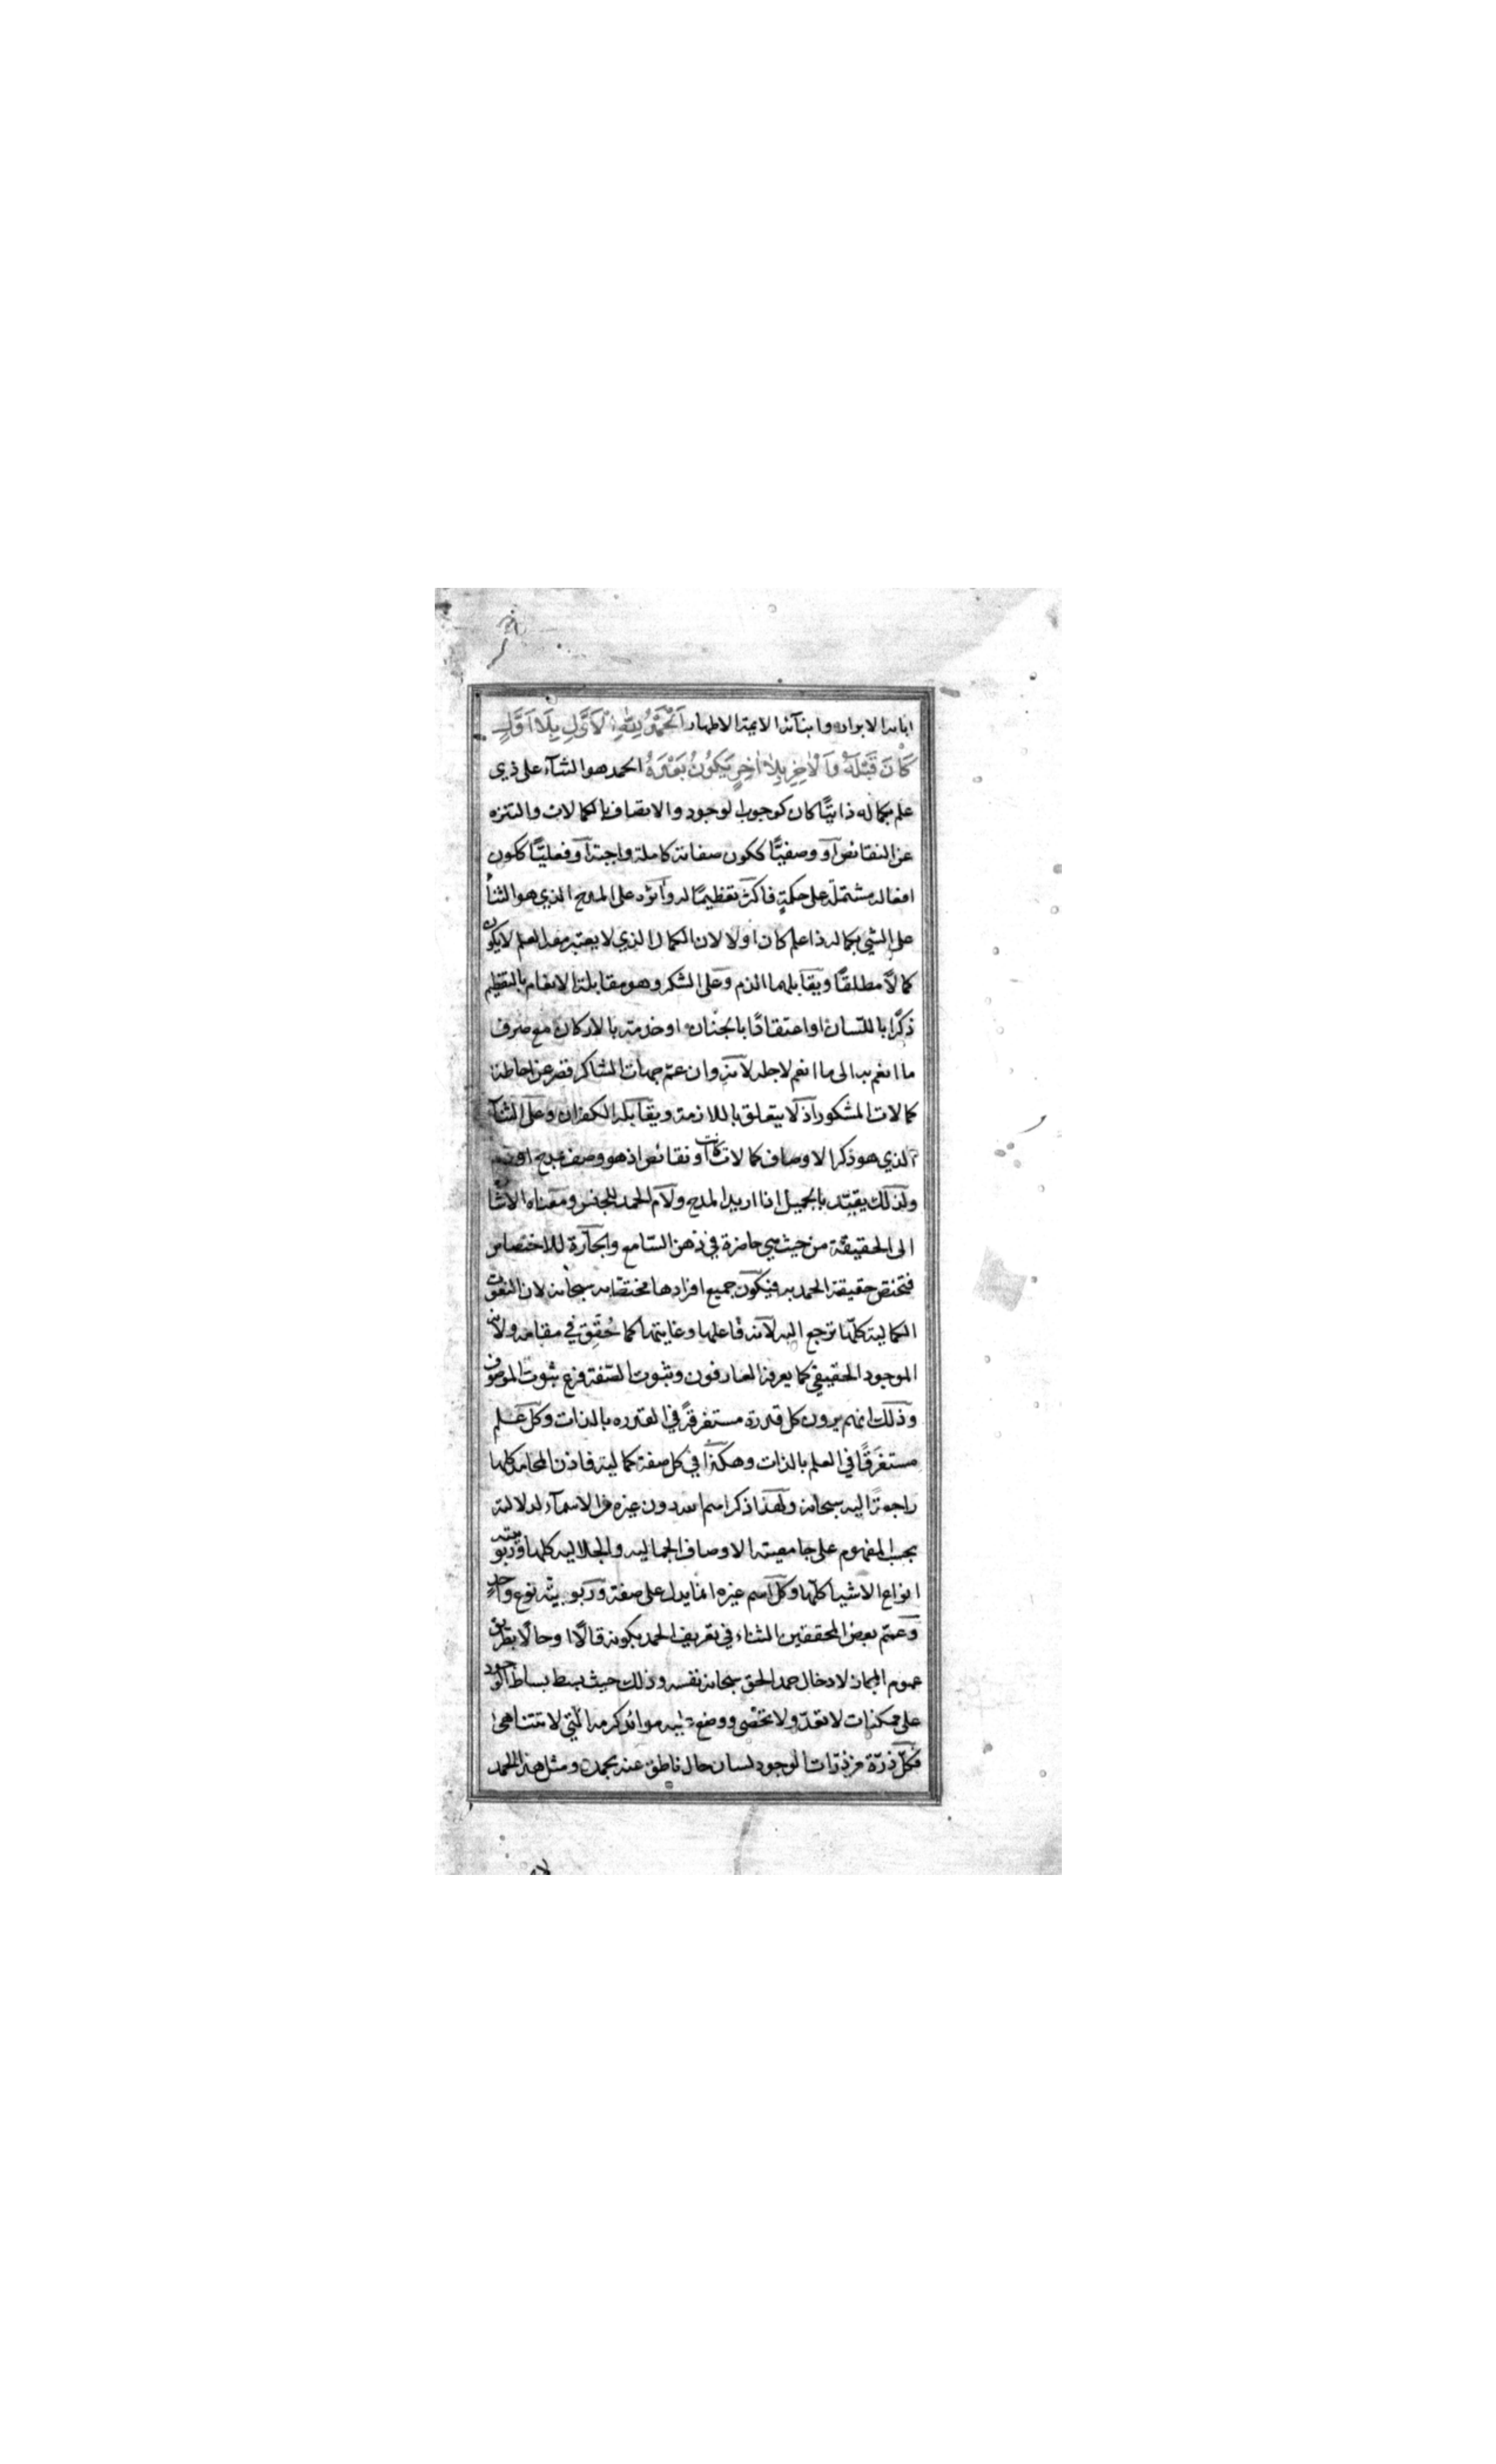 ابائه الابرار وابنائه الايمة الاطهار اَلْحَمْدُ لِلّٰهِ الْاَوَّلِ بِلَا اَوَّلٍ
كَانَ قَبْلَهُ وَالْاٰخِرِ بِلَا اٰخِرٍ يَكُونُ بَعْدَهُ الحمد هو الثنآء على ذي
علم بكماله ذاتيًّا كان كوجوب الوجود والاتصاف بالكمالات والتنزه
عن النقائص او وصفيًّا ككون صفاته كاملة واجبة او فعليًّا ككون
افعاله مشتملة على حكمةٍ فاكثر تعظيمًا له وآثره على المدح الذي هو الثنآء
على الشي بكماله ذا علم كان اولا لان الكمال الذي لا يعتبر معه العلم لا يكون
كمالاً مطلقًا ويقابلهما الذم وعلى الشكر وهو مقابلة الانعام بالتعظيم
ذكرًا باللسان او اعتقادًا بالجنان او خدمة بالاركان مع صرف
ما انعم به الى ما انعم لاجله لانه وان عمّ جهات الشاكر قصر عن احاطة
كمالات المشكور اذ لا يتعلق باللازمة ويقابله الكفران وعلى الثنآء
الذي هو ذكر الاوصاف كمالات كانت او نقائص اذ هو وصف بمدح او
ولذلك يقيّد بالجميل اذا اريد المدح ولام الحمد للجنس ومعناه الاشارة
الى الحقيقة من حيث هي حاضرة في ذهن السّامع والجارّة للاختصاص
فتختص حقيقة الحمد به فيكون جميع افرادها مختصّا به سبحانه لان النعوت
الكمالية كلّها ترجع اليه لانه فاعلها وغايتها كما حُقِّق في مقامه ولانه
الموجود الحقيقي كما يعرفه العارفون وثبوت الصّفة فرع ثبوت الموصوف
وذلك انهم يرون كل قدرة مستغرقةً في القدرة بالذات وكل علم
مستغرَقًا في العلم بالذات وهكذا في كل صفة كمالية فاذن المحامد كلها
راجعةً اليه سبحانه ولهذا ذكر اسم الله دون غيره من الاسمآء لدلالته
بحسب المفهوم على جامعيته الاوصاف الجمالية والجلالية كلها وربوبيته
انواع الاشيا كلّها وكل اسم غيره انما يدل على صفة وربوبيته نوع واحدٍ
وعمّم بعض المحققين الثناء في تعريف الحمد بكونه قالًا او حالًا بطريق
عموم المجاز لادخال حمد الحق سبحانه نفسه وذلك حيث بسط بساط الوجود
على ممكنات لا تعدّ ولا تحصى ووضع عليه موائد كرمه الّتي لا تتناهى
فكلّ ذرّة من ذرّات الوجود لسان حال ناطق عنه بحمده ومثل هذا الحمد